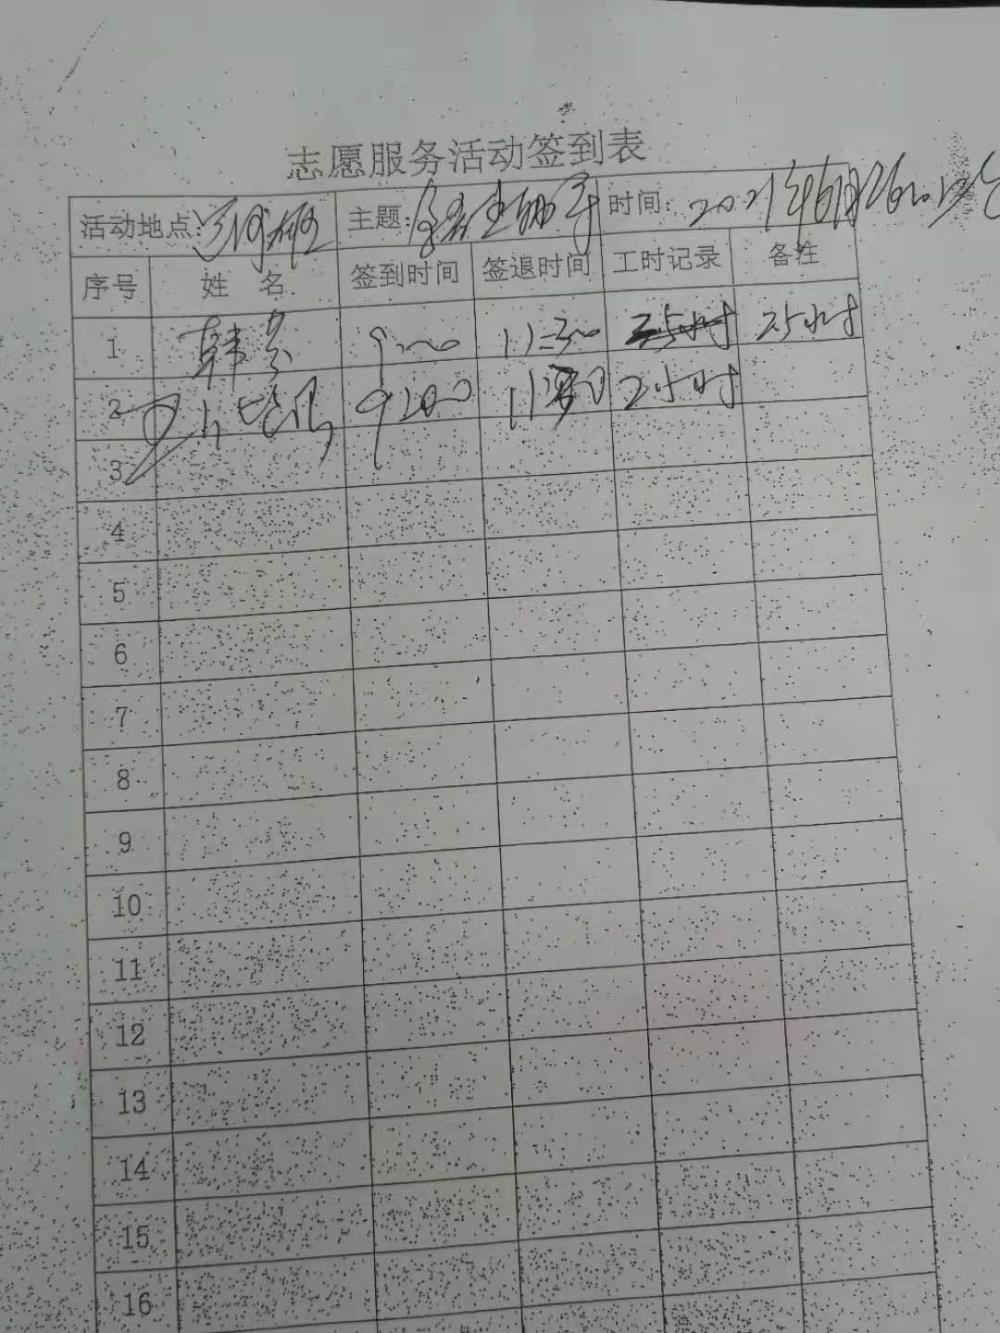 志愿服务活动签到表
活动地点: 主题: 时间: 2021年6月26日
序号 姓 名 签到时间 签退时间 工时记录 备注
1 韩 9:00 11:30 2.5小时
2 9:00 11 2小时
3
4
5
6
7
8
9
10
11
12
13
14
15
16